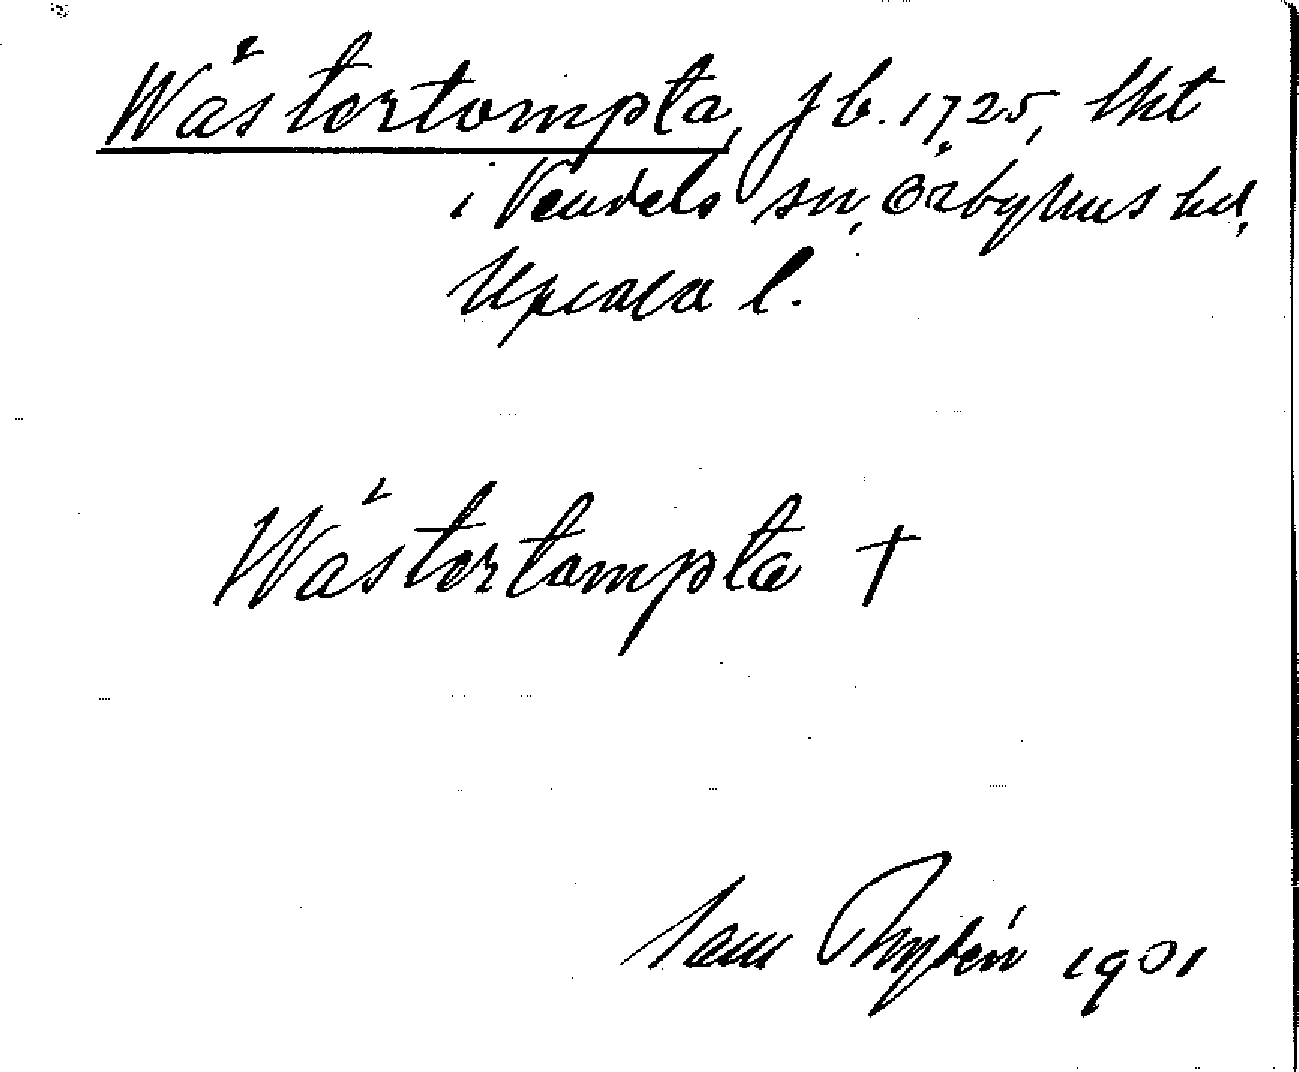 Wästertompta, jb. 1725, lht
i Vendels sn, Örbyhus hd,
Upsala l.
Wästertompta †
Sam 1901